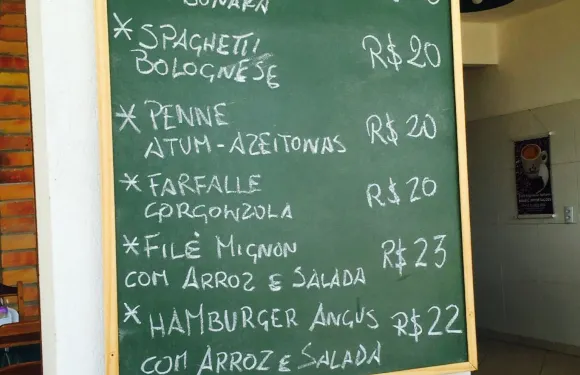 * SPAGHETTI R$20
BOLOGNESE
* PENNE R$20
ATUM-AZEITONAS
* FARFALLE R$20
GORGONZOLA
* FILÈ MIGNON R$23
COM ARROZ E SALADA
* HAMBURGER ANGUS R$22
COM ARROZ E SALADA